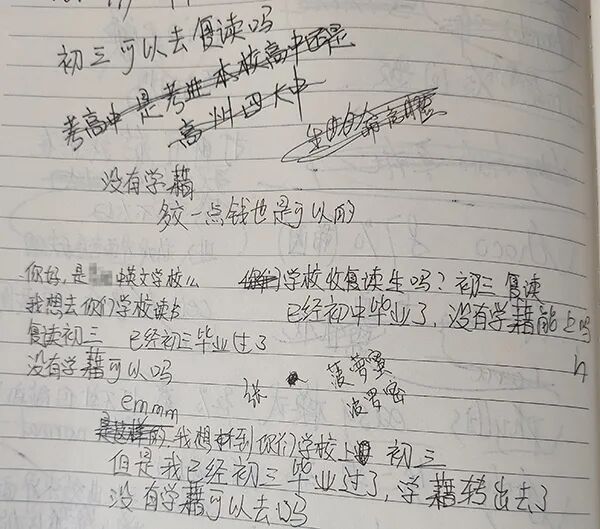 初三可以去复读吗
考高中是考进本校高中还是
高州四大中
没有学藉
多交一点钱也是可以的
你好,是 英文学校么
学校收复读生吗?初三复读
我想去你们学校读书
已经初中毕业了,没有学藉能上吗
复读初三 已经初三毕业过了
没有学藉可以吗
张 菠萝蜜
波罗密
emmm
是这样的 我想来到你们学校上 初三
但是我已经初三毕业过了,学藉转出去了
没有学藉可以去吗